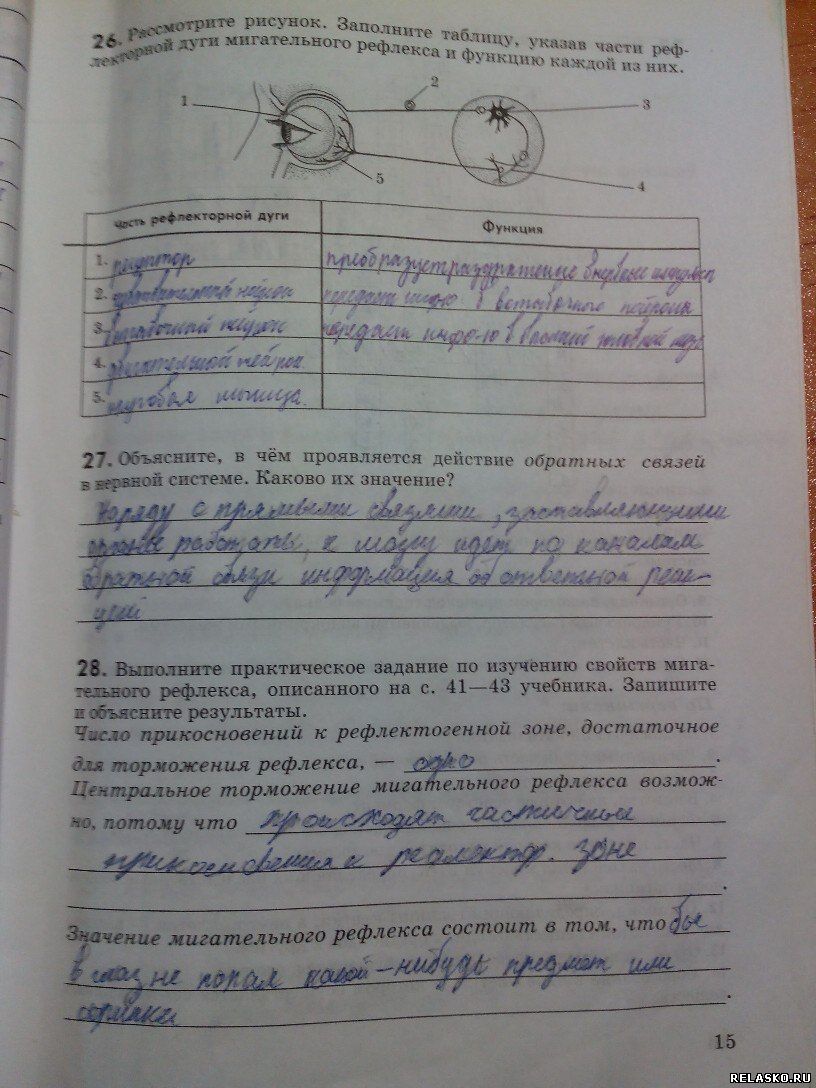 26. Рассмотрите рисунок. Заполните таблицу, указав части реф-
лекторной дуги мигательного рефлекса и функцию каждой из них.
1
2
3
4
5
Часть рефлекторной дуги
Функция
1. рецептор
преобразует раздражение в нервные импульсы
2. чувствительный нейрон
передают инфо в вставочного нейрона
3. вставочный нейрон
передают инфо-ю в головной мозг
4. двигательный нейрон
5. круговая мышца.
27. Объясните, в чём проявляется действие обратных связей
в нервной системе. Каково их значение?
Наряду с прямыми связями, заставляющими
органы работать, к мозгу идет по каналам
обратной связи информация об ответной реак-
ций
28. Выполните практическое задание по изучению свойств мига-
тельного рефлекса, описанного на с. 41—43 учебника. Запишите
и объясните результаты.
Число прикосновений к рефлектогенной зоне, достаточное
для торможения рефлекса, — одно.
Центральное торможение мигательного рефлекса возмож-
но, потому что происходят частичные
прикосновения к зоне
.
Значение мигательного рефлекса состоит в том, что бы
в глаз не попал какой-нибудь предмет или
.
15
RELASKO.RU